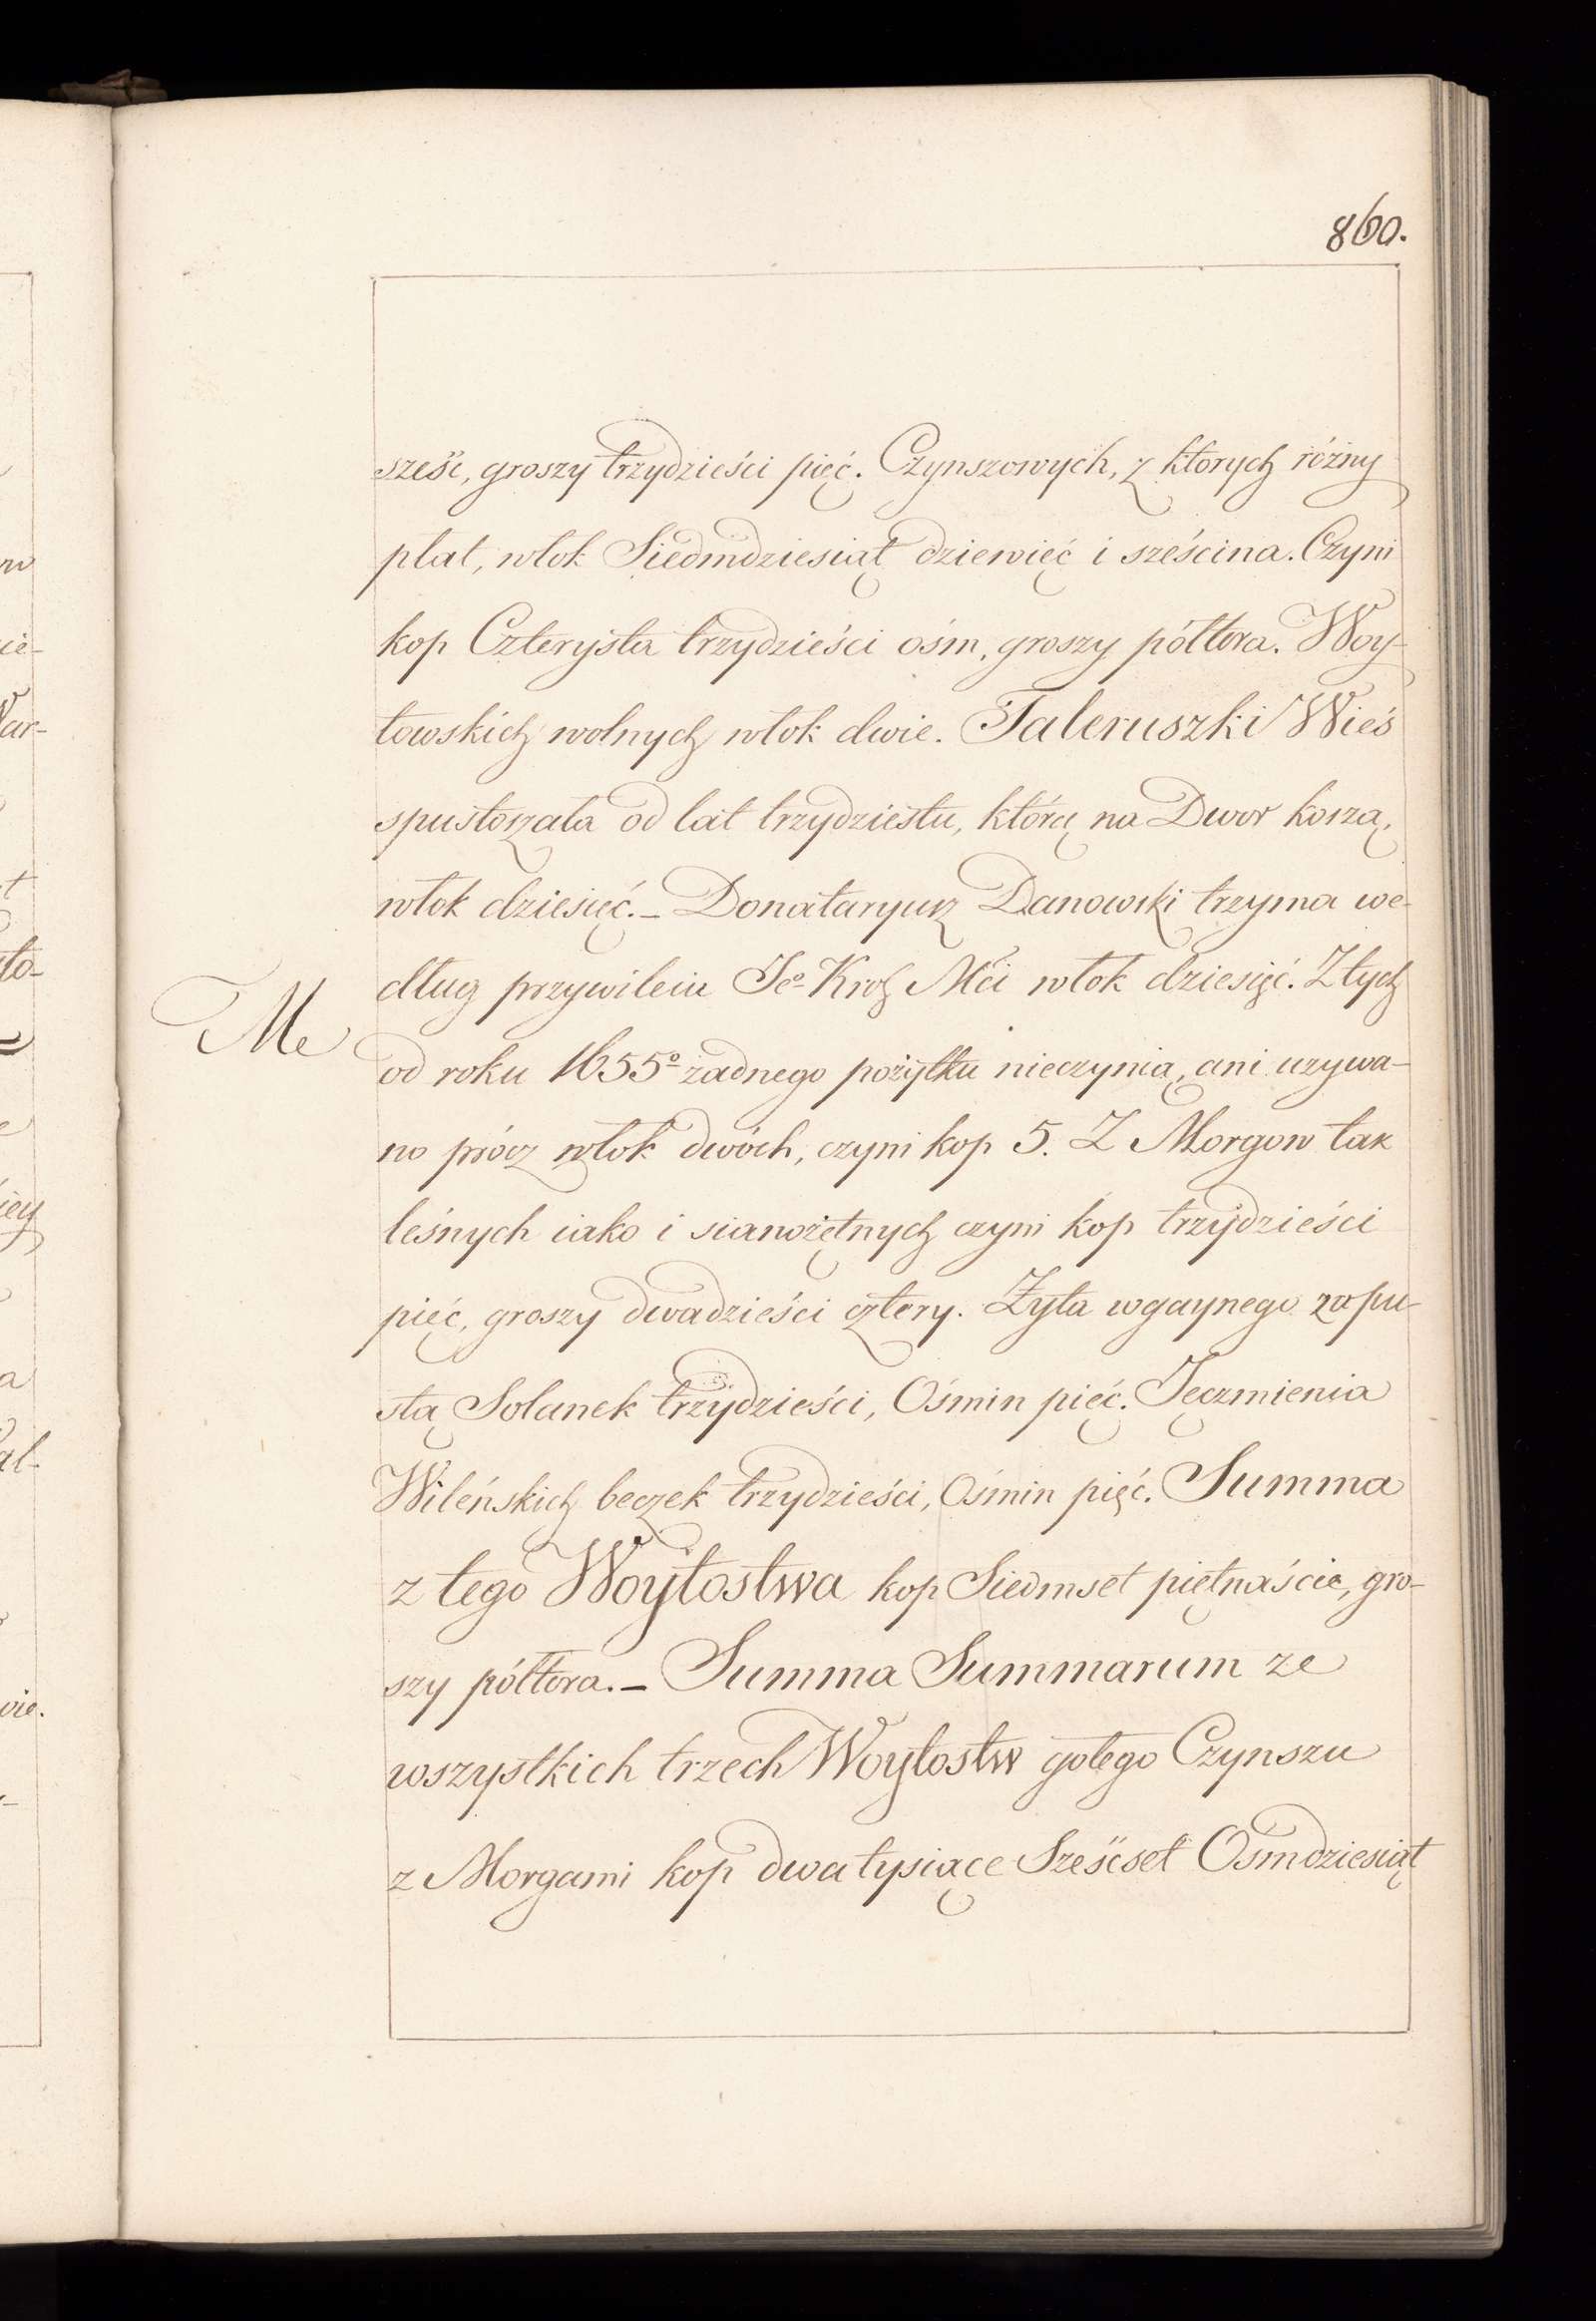 860.
sześc, groszy trzydzieści pięć. Czynszowych, z ktorych różny
płat, włok Siedmdziesiąt dziewięć i sześcina. Czyni
kop Czterysta trzydzieści ośm, groszy półtora. Woy-
towskich wolnych włok dwie. Taleruszki Wieś
spustoszała od lat trzydziestu, którą na Dwor koszą,
włok dziesięć. _ Donataryusz Danowski trzyma we-
dług przywileiu Jeo Krol Mći włok dziesięć. Z tych
Me
od roku 1655o żadnego pożytku nieczynią, ani uzywa-
no prócz włok dwóch, czyni kop 5. Z Morgow tak
leśnych iako i sianożętnych czyni kop trzydzieści
pięć, groszy dwadzieści cztery. Żyta wgaynego zapu-
stą Solanek trzydzieści, Ośmin pięć. Jęczmienia
Wileńskich beczek trzydzieści, Ośmin pięć. Summa
z tego Woytostwa kop Siedmset piętnaście, gro-
szy półtora. _ Summa Summarum ze
wszystkich trzech Woytostw gołego Czynszu
z Morgami kop dwatysiące Sześćset Ośmdziesiąt